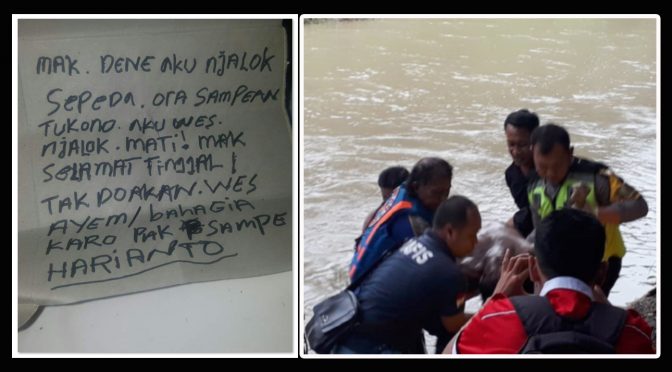 MAK. DENE AKU NJALOK
SEPEDA. ORA SAMPEAN
TUKONO. AKU WES.
NJALOK. MATI! MAK
SELAMAT TINGGAL!
TAK DOAKAN. WES
AYEM/bAHAGIA
KARO PAK SAMPE
HARIANTO